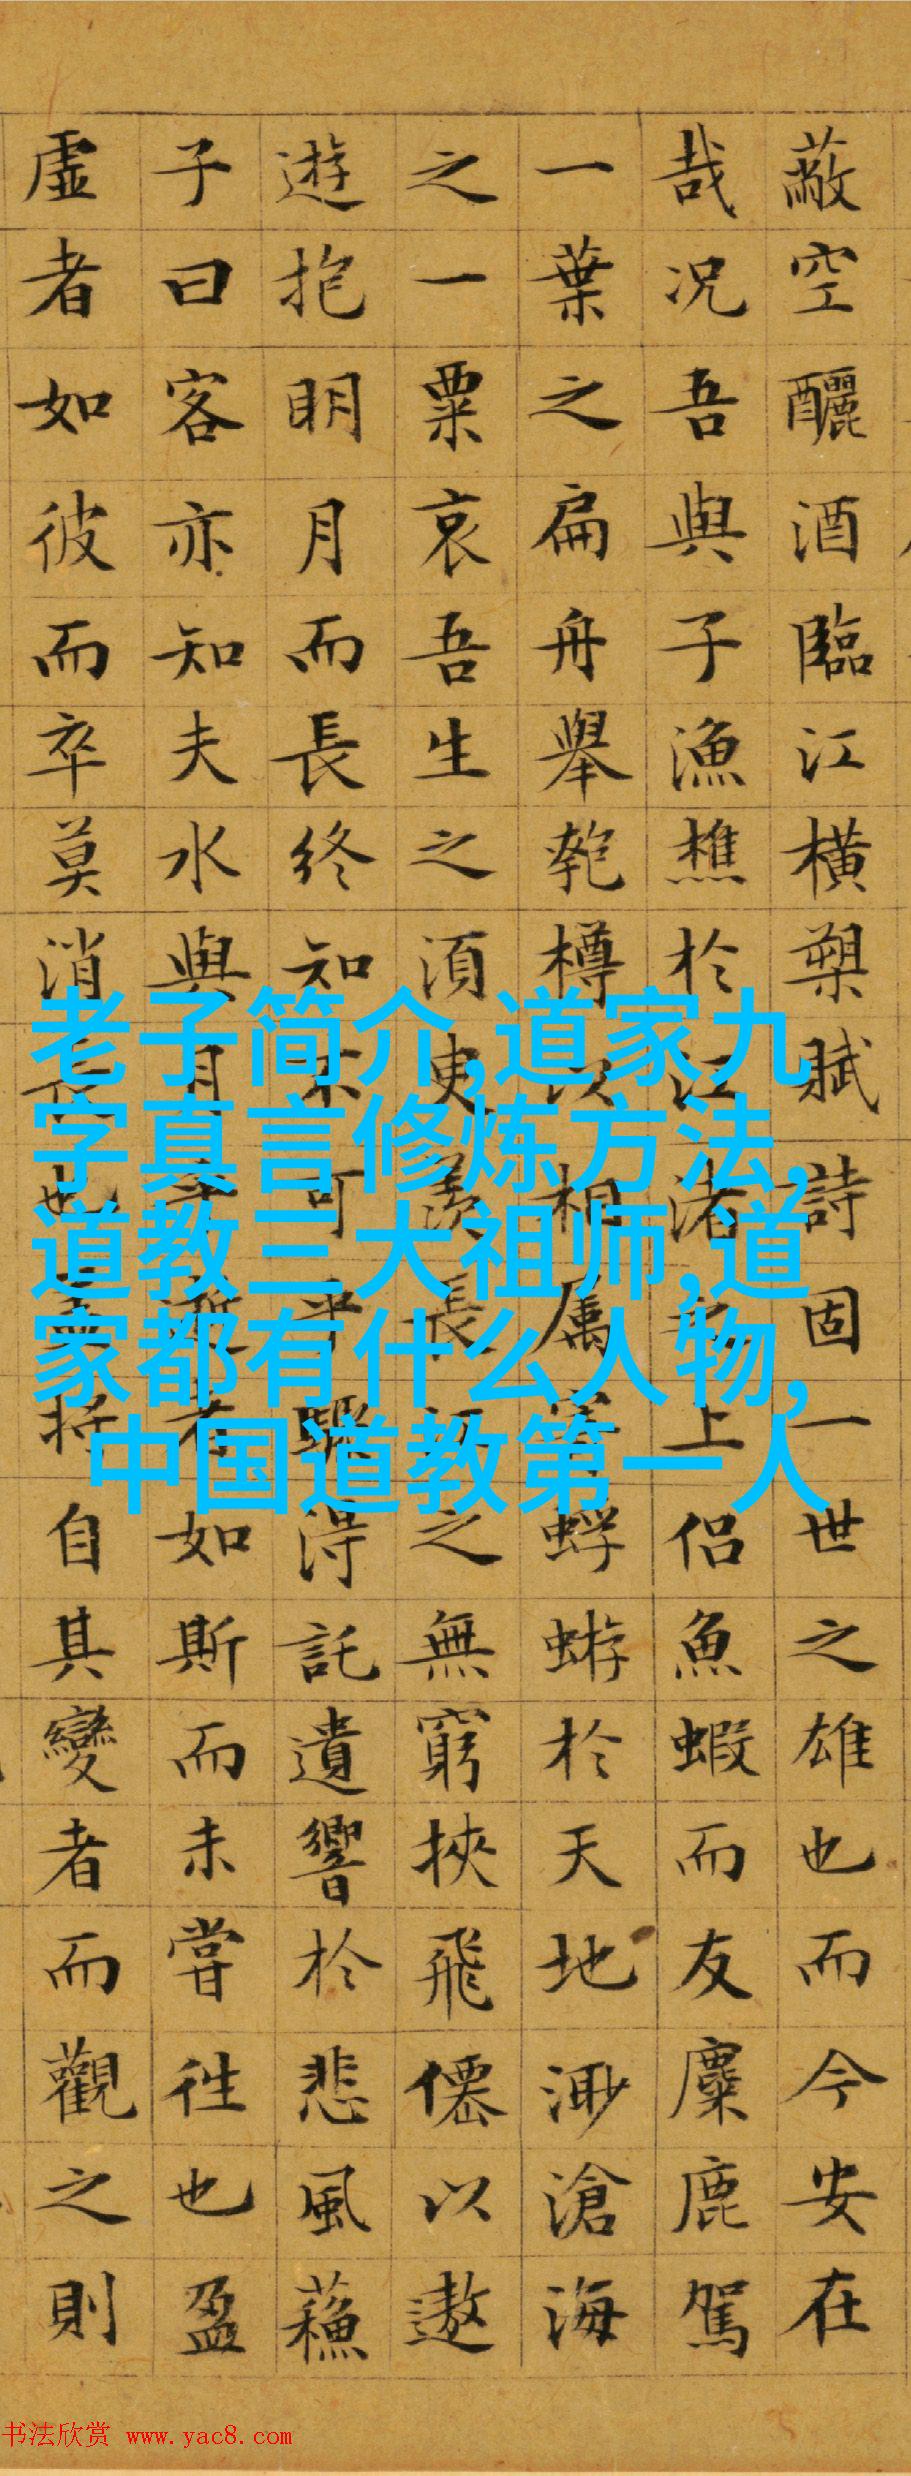 蔽空釃酒臨江橫槊賦詩固一世之雄也而今安在
哉况吾與子漁樵於江渚上侶魚蝦而友麋鹿駕
一葉之扁舟舉匏樽以相属蜉蝣於天地渺滄海
之一粟哀吾生之須臾羨長之無窮挾飛僊以遨
遊抱明月而長終知不可乎驟得託遺響於悲風蘓
子曰客亦知夫水與月者如斯而未嘗往也盈
虛者如彼而卒莫消長也將自其變者而觀之則
老子简介,道家九
字真言修炼方法,
道教三大祖师,道
家都有什么人物,
中国道教第一人
书法欣赏 www.yac8.com